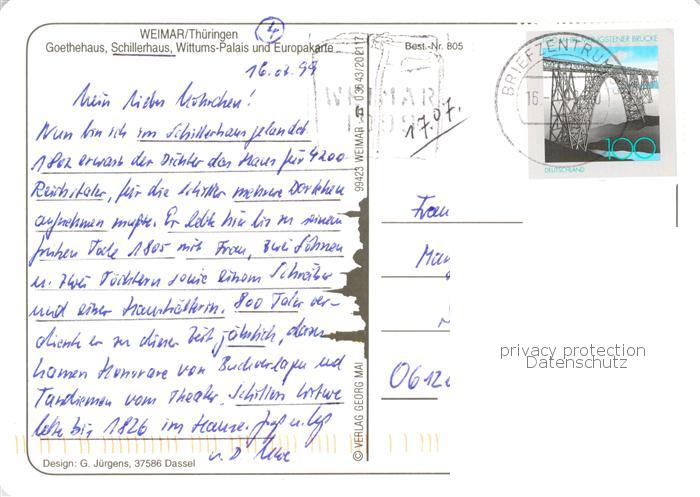 WEIMAR/Thüringen
Goethehaus, Schillerhaus, Wittums-Palais und Europakarte
4
Best.-Nr. 805
16.07.99
Mein liebes
Nun bin ich im Schillerhaus gelandet.
1802 erwarb der Dichter das Haus für 4200
Reichstaler, für die Schiller mehrere Darlehen
aufnehmen mußte. Er lebte hier bis zu seinem
frühen Tode 1805 mit Frau, zwei Söhnen
u. zwei Töchtern sowie einem Schreiber
und einer Haushälterin. 800 Taler ver-
diente er zu dieser Zeit jährlich, dazu
kamen Honorare von Buchverlagen und
Tantiemen vom Theater. Schillers Witwe
lebte bis 1826 im Hause. Gruß u.
Uwe
Design: G. Jürgens, 37586 Dassel
© VERLAG GEORG MAI 99423 WEIMAR 0 36 43/20 21 17
WEIMAR
1999
17.07.
BRIEFZENTRUM
16.
MÜNGSTENER BRÜCKE
100
DEUTSCHLAND
Frau
0612
privacy protection
Datenschutz